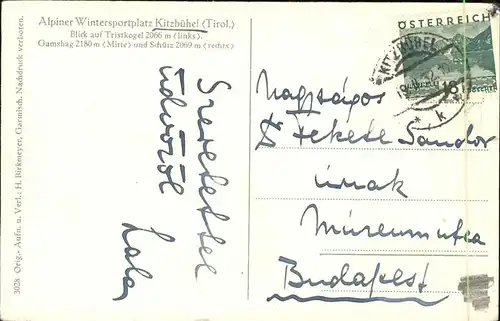 Alpiner Wintersportplatz Kitzbühel (Tirol.)
Blick auf Tristkogel 2066 m (links).
Gamshag 2180 m (Mitte) und Schütz 2069 m (rechts)
3028 Orig.- Aufn. u. Verl.: H. Birkmeyer, Garmisch. Nachdruck verboten.
Szeretettel
üdvözöl
Lala
ÖSTERREICH
GROSCHEN
KITZBÜHEL
Nagyságos
Fekete Sándor
úrnak
Múzeum utca
Budapest